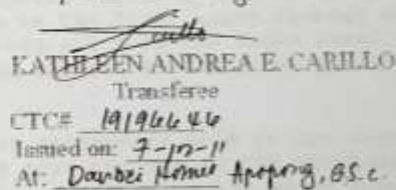 KATHLEEN ANDREA E. CARILLO
Transferee
CTC# 19196646
Issued on: 7-12-11
At: Homes Apopong, GS.C.